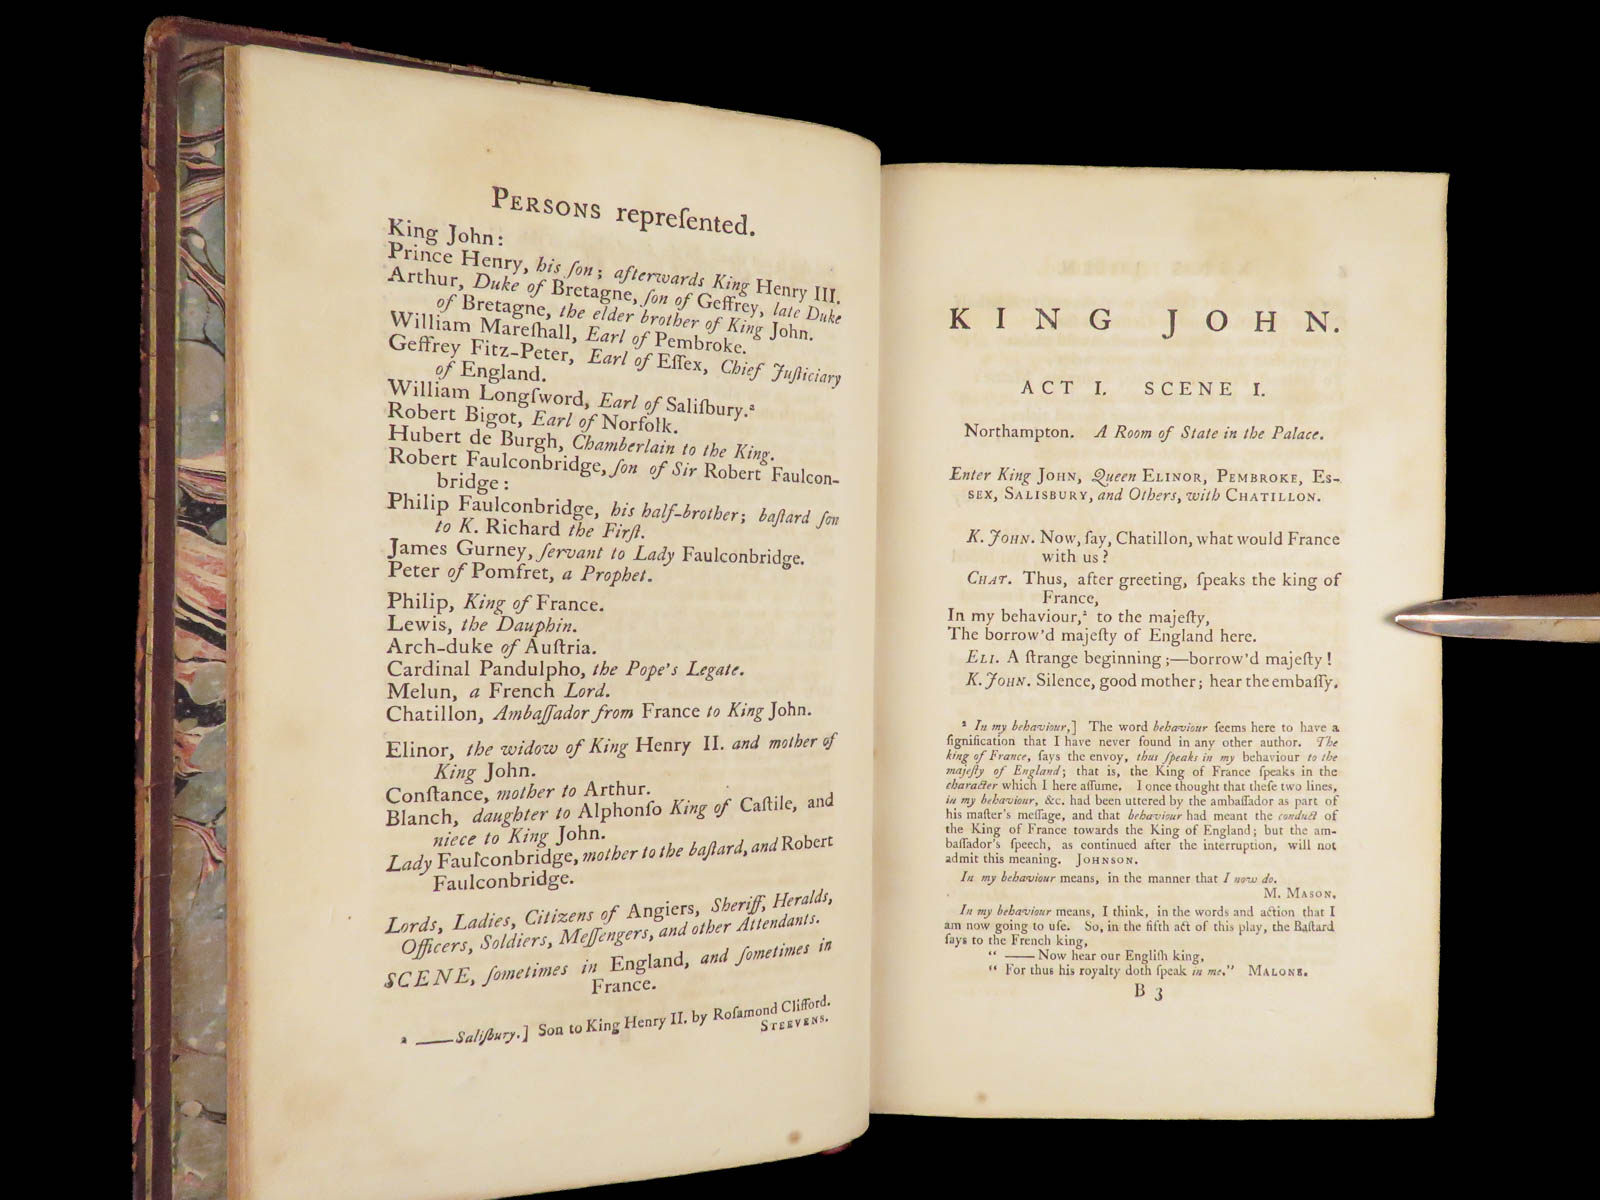 PERSONS repreſented.
King John:
Prince Henry, his ſon; afterwards King Henry III.
Arthur, Duke of Bretagne, ſon of Geffrey, late Duke
of Bretagne, the elder brother of King John.
William Mareſhall, Earl of Pembroke.
Geffrey Fitz-Peter, Earl of Eſſex, Chief Juſticiary
of England.
William Longſword, Earl of Saliſbury.²
Robert Bigot, Earl of Norfolk.
Hubert de Burgh, Chamberlain to the King.
Robert Faulconbridge, ſon of Sir Robert Faulcon-
bridge:
Philip Faulconbridge, his half-brother; baſtard ſon
to K. Richard the Firſt.
James Gurney, ſervant to Lady Faulconbridge.
Peter of Pomfret, a Prophet.
Philip, King of France.
Lewis, the Dauphin.
Arch-duke of Auſtria.
Cardinal Pandulpho, the Pope's Legate.
Melun, a French Lord.
Chatillon, Ambaſſador from France to King John.
Elinor, the widow of King Henry II. and mother of
King John.
Conſtance, mother to Arthur.
Blanch, daughter to Alphonſo King of Caſtile, and
niece to King John.
Lady Faulconbridge, mother to the baſtard, and Robert
Faulconbridge.
Lords, Ladies, Citizens of Angiers, Sheriff, Heralds,
Officers, Soldiers, Meſſengers, and other Attendants.
SCENE, ſometimes in England, and ſometimes in
France.
² ——Saliſbury.] Son to King Henry II. by Roſamond Clifford.
STEEVENS.
KING JOHN.
ACT I. SCENE I.
Northampton. A Room of State in the Palace.
Enter King JOHN, Queen ELINOR, PEMBROKE, ES-
SEX, SALISBURY, and Others, with CHATILLON.
K. JOHN. Now, ſay, Chatillon, what would France
with us?
CHAT. Thus, after greeting, ſpeaks the king of
France,
In my behaviour,² to the majeſty,
The borrow'd majeſty of England here.
ELI. A ſtrange beginning;—borrow'd majeſty!
K. JOHN. Silence, good mother; hear the embaſſy.
² In my behaviour,] The word behaviour ſeems here to have a
ſignification that I have never found in any other author. The
king of France, ſays the envoy, thus ſpeaks in my behaviour to the
majeſty of England; that is, the King of France ſpeaks in the
character which I here aſſume. I once thought that theſe two lines,
in my behaviour, &c. had been uttered by the ambaſſador as part of
his maſter's meſſage, and that behaviour had meant the conduct of
the King of France towards the King of England; but the am-
baſſador's ſpeech, as continued after the interruption, will not
admit this meaning. JOHNSON.
In my behaviour means, in the manner that I now do.
M. MASON.
In my behaviour means, I think, in the words and action that I
am now going to uſe. So, in the fifth act of this play, the Baſtard
ſays to the French king,
" —— Now hear our Engliſh king,
" For thus his royalty doth ſpeak in me." MALONE.
B 3